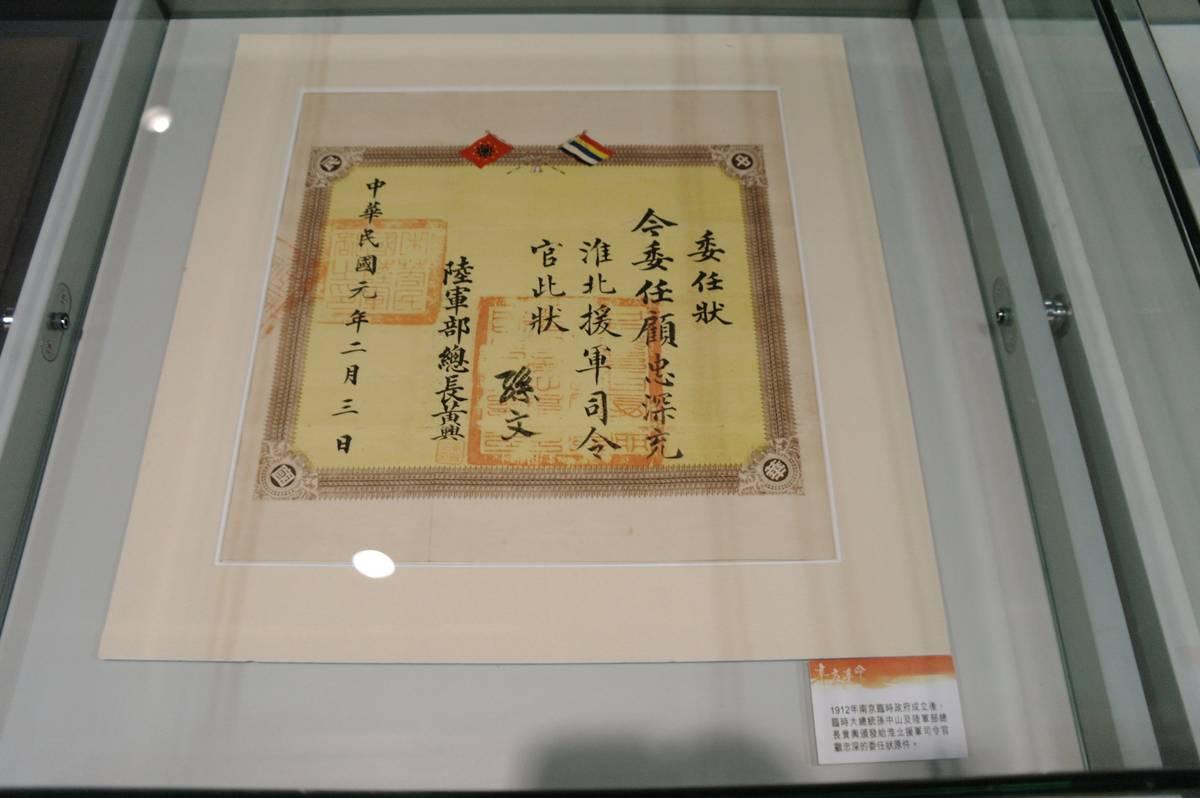 委任狀
令委任顧忠深充
淮北援軍司令
官此狀
孫文
陸軍部總長黃興
中華民國元年二月三日
中
華
民
國
辛亥革命
1912年南京臨時政府成立後，
臨時大總統孫中山及陸軍部總
長黃興頒發給淮北援軍司令官
顧忠深的委任狀原件。